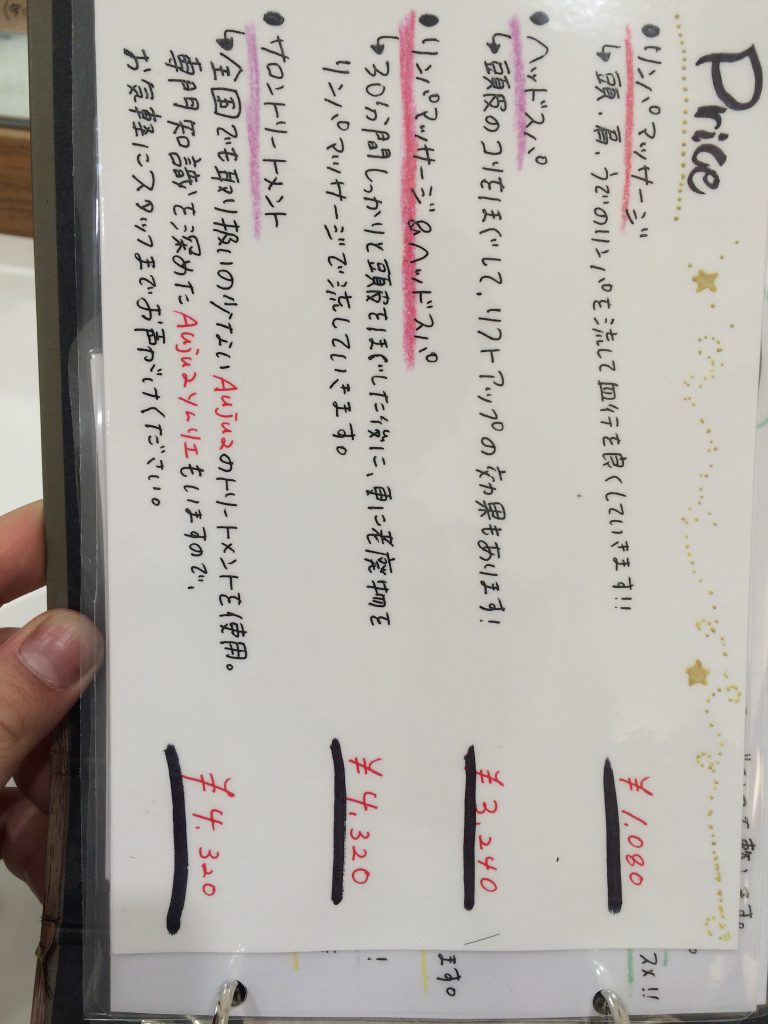 Price
•リンパマッサージ
↳頭、肩、うでのリンパを流して血行を良くしていきます!!
¥1,080
•ヘッドスパ
↳頭皮のコリをほぐして、リフトアップの効果もあります!
¥3,240
•リンパマッサージ&ヘッドスパ
↳30分間しっかりと頭皮をほぐした後に、更に老廃物を
リンパマッサージで流していきます。
¥4,320
•サロントリートメント
↳全国でも取り扱いの少ないAujuaのトリートメントを使用。
専門知識を深めたAujuaソムリエもいますので、
お気軽にスタッフまでお声がけください。
¥4,320
います。
スメ!!
ます。
!